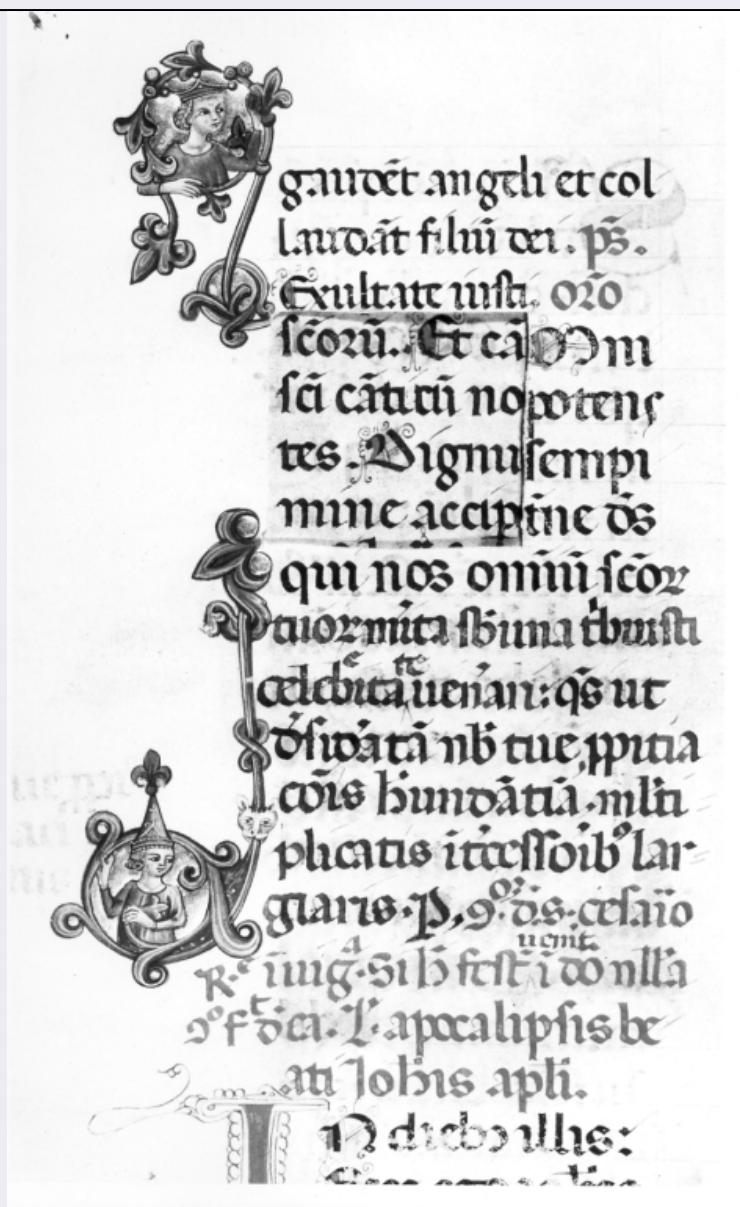 gaudēt angeli et col
laudāt filiū dei. ps̄.
Exultate iusti. oro̅
sc̄orū. Et cā Omni
sc̄i cāticū no potens
tes. Dignu sempi
mine accip tne ds̄
qui nos omniū sc̄oꝝ
tuoꝝ mīta sb̄ una tbuisti
celebitate uenāri: qs̄ ut
dsidātā nb̄ tue ppitia
cōis hundātiā. mlti
plicatis itcessoib' lar
giaris. P.
fest i do nll'a
apocalipsis be
ati Joh̄is apli.
In dieb' illis: